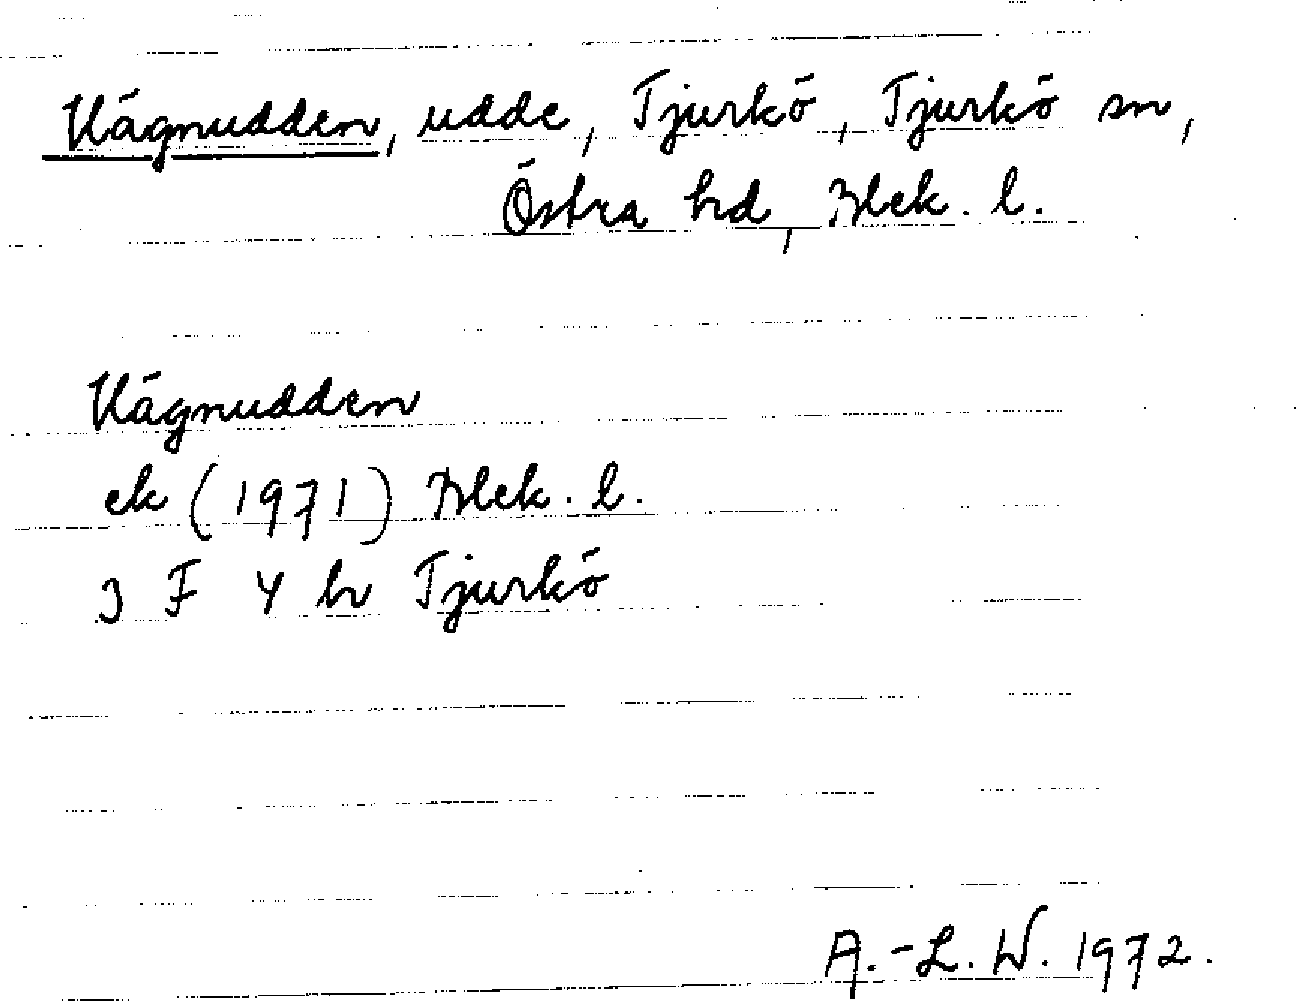 Hägnudden, udde, Tjurkö, Tjurkö sn,
Östra hd, Blek. l.
Hägnudden
ek (1971) Blek. l.
3 F 4 h Tjurkö
A.-L. W. 1972.